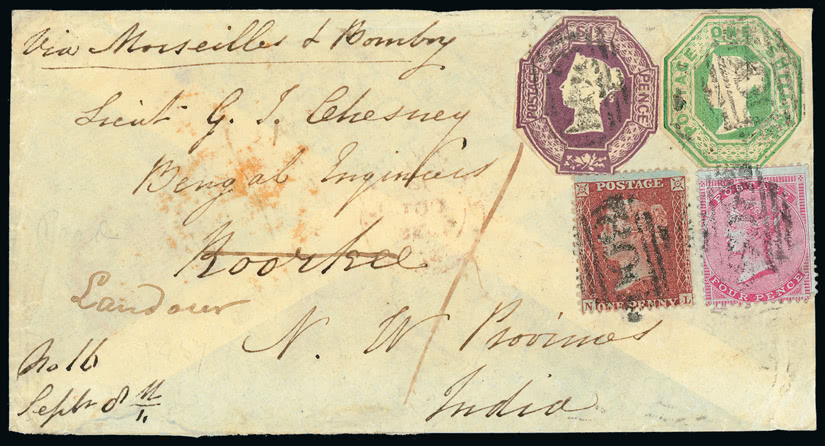 Via Marseilles & Bombay
Lieut G. J. Chesney
Bengal Engineers
Roorkee
Landour
N. W Provinces
India
No 16
Septr 8
POSTAGE PENCE
POSTAGE ONE
POSTAGE
N ONE PENNY L
FOUR PENCE